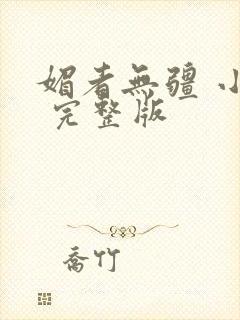 媚者無疆 小
完整版
喬竹